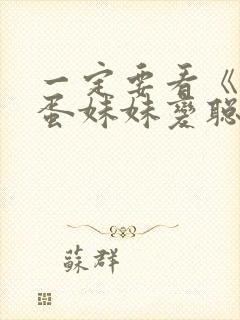 一定要看《
蛋妹妹变聪
苏群